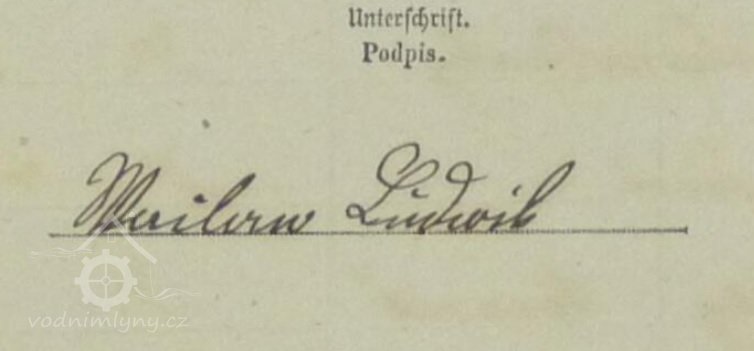 Unterschrift.
Podpis.
Ludwik
vodnimlyny.cz